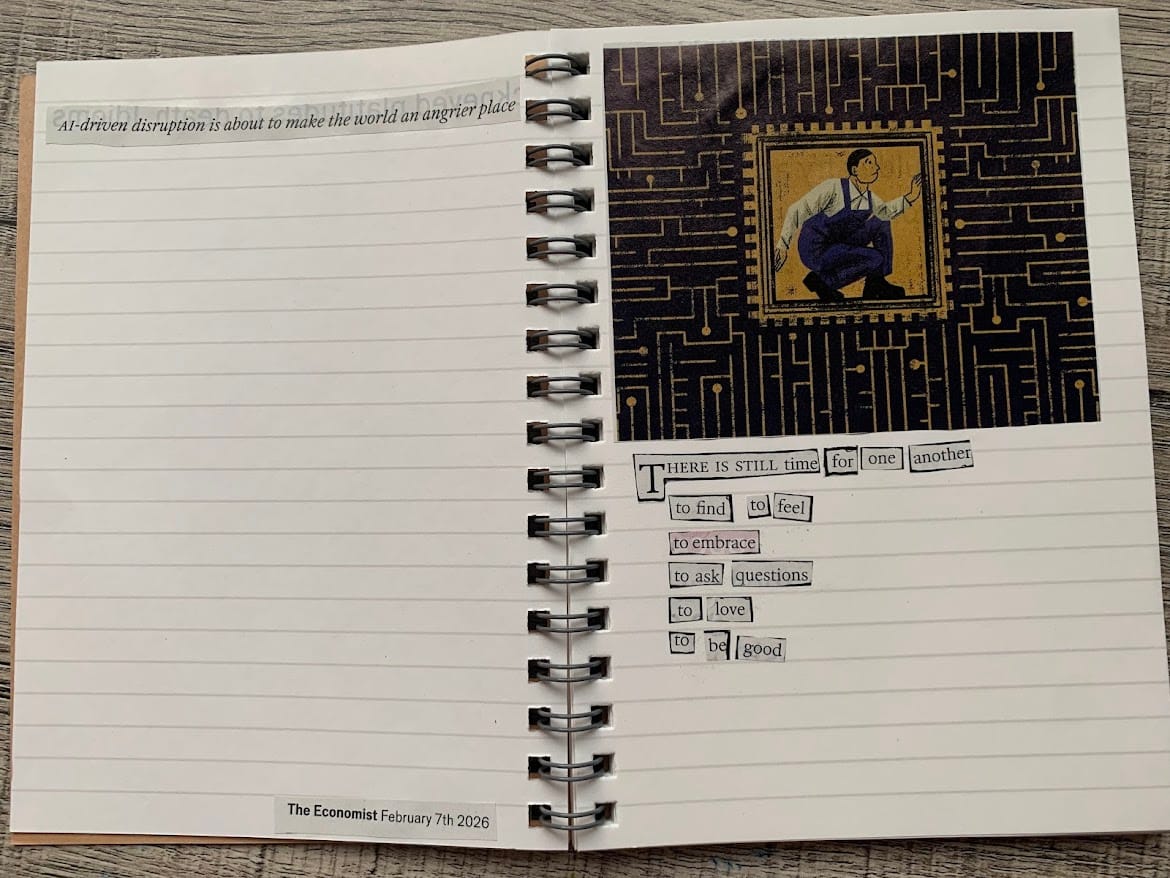 AI-driven disruption is about to make the world an angrier place
The Economist February 7th 2026
THERE IS STILL time for one another
to find to feel
to embrace
to ask questions
to love
to be good